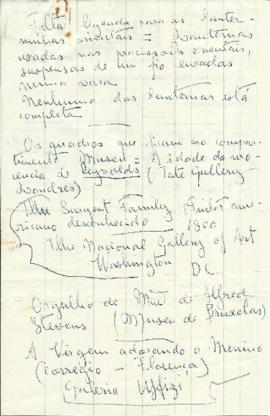 Falta legenda para as lanter-
ninhas orientais = Lanternas
usadas nas procissões orientais,
suspensas de um fio levadas
numa vara
Nenhuma das lanternas está
completa
Os quadros que ficam no compar-
timento Museu = A idade da ino-
cencia de Reynolds (Tate Gallery
Londres)
The Sargent Family (Pintor ame-
ricano desconhecido 1800
The National Gallery of Art
Washington
DC
Orgulho de Mãe de Alfred
Stevens (Museu de Bruxelas)
A Virgem adorando o Menino
(Corregio - Florença)
Galeria Uffizi